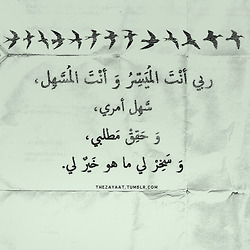 ربي أنْتَ المُيَسِّرُ وَ أنْتَ المُسَّهِل،
سَّهِل أمري،
وَ حَقِقْ مَطلبي،
وَ سَخِرْ لي ما هو خَيرٌ لي.
THEZAYAAT.TUMBLR.COM